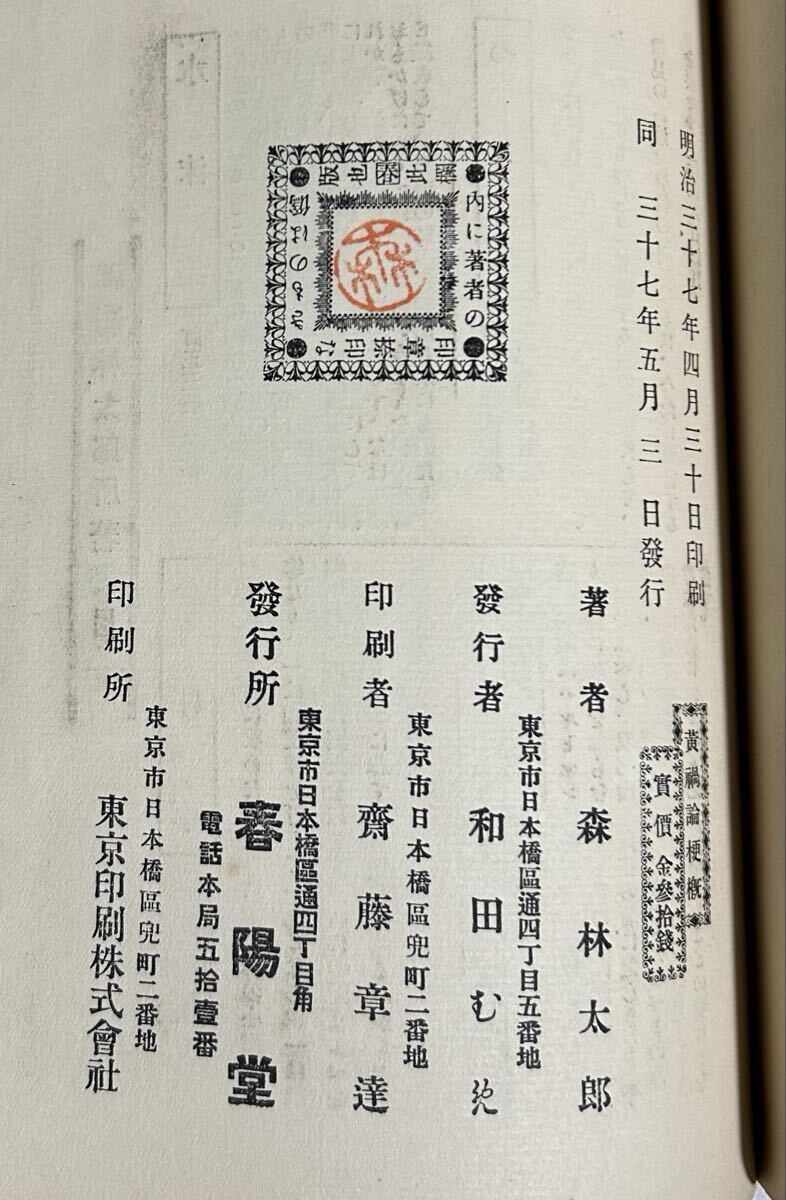 明治三十七年四月三十日印刷
同 三十七年五月三日發行
黃禍論梗概
實價金參拾錢
著者 森林太郎
東京市日本橋區通四丁目五番地
發行者 和田むめ
東京市日本橋區兜町二番地
印刷者 齋藤章達
東京市日本橋區通四丁目角
發行所 春陽堂
電話本局五拾壹番
東京市日本橋區兜町二番地
印刷所 東京印刷株式會社
此欄
内に著者の
印章捺印な
きものは僞
版也
森